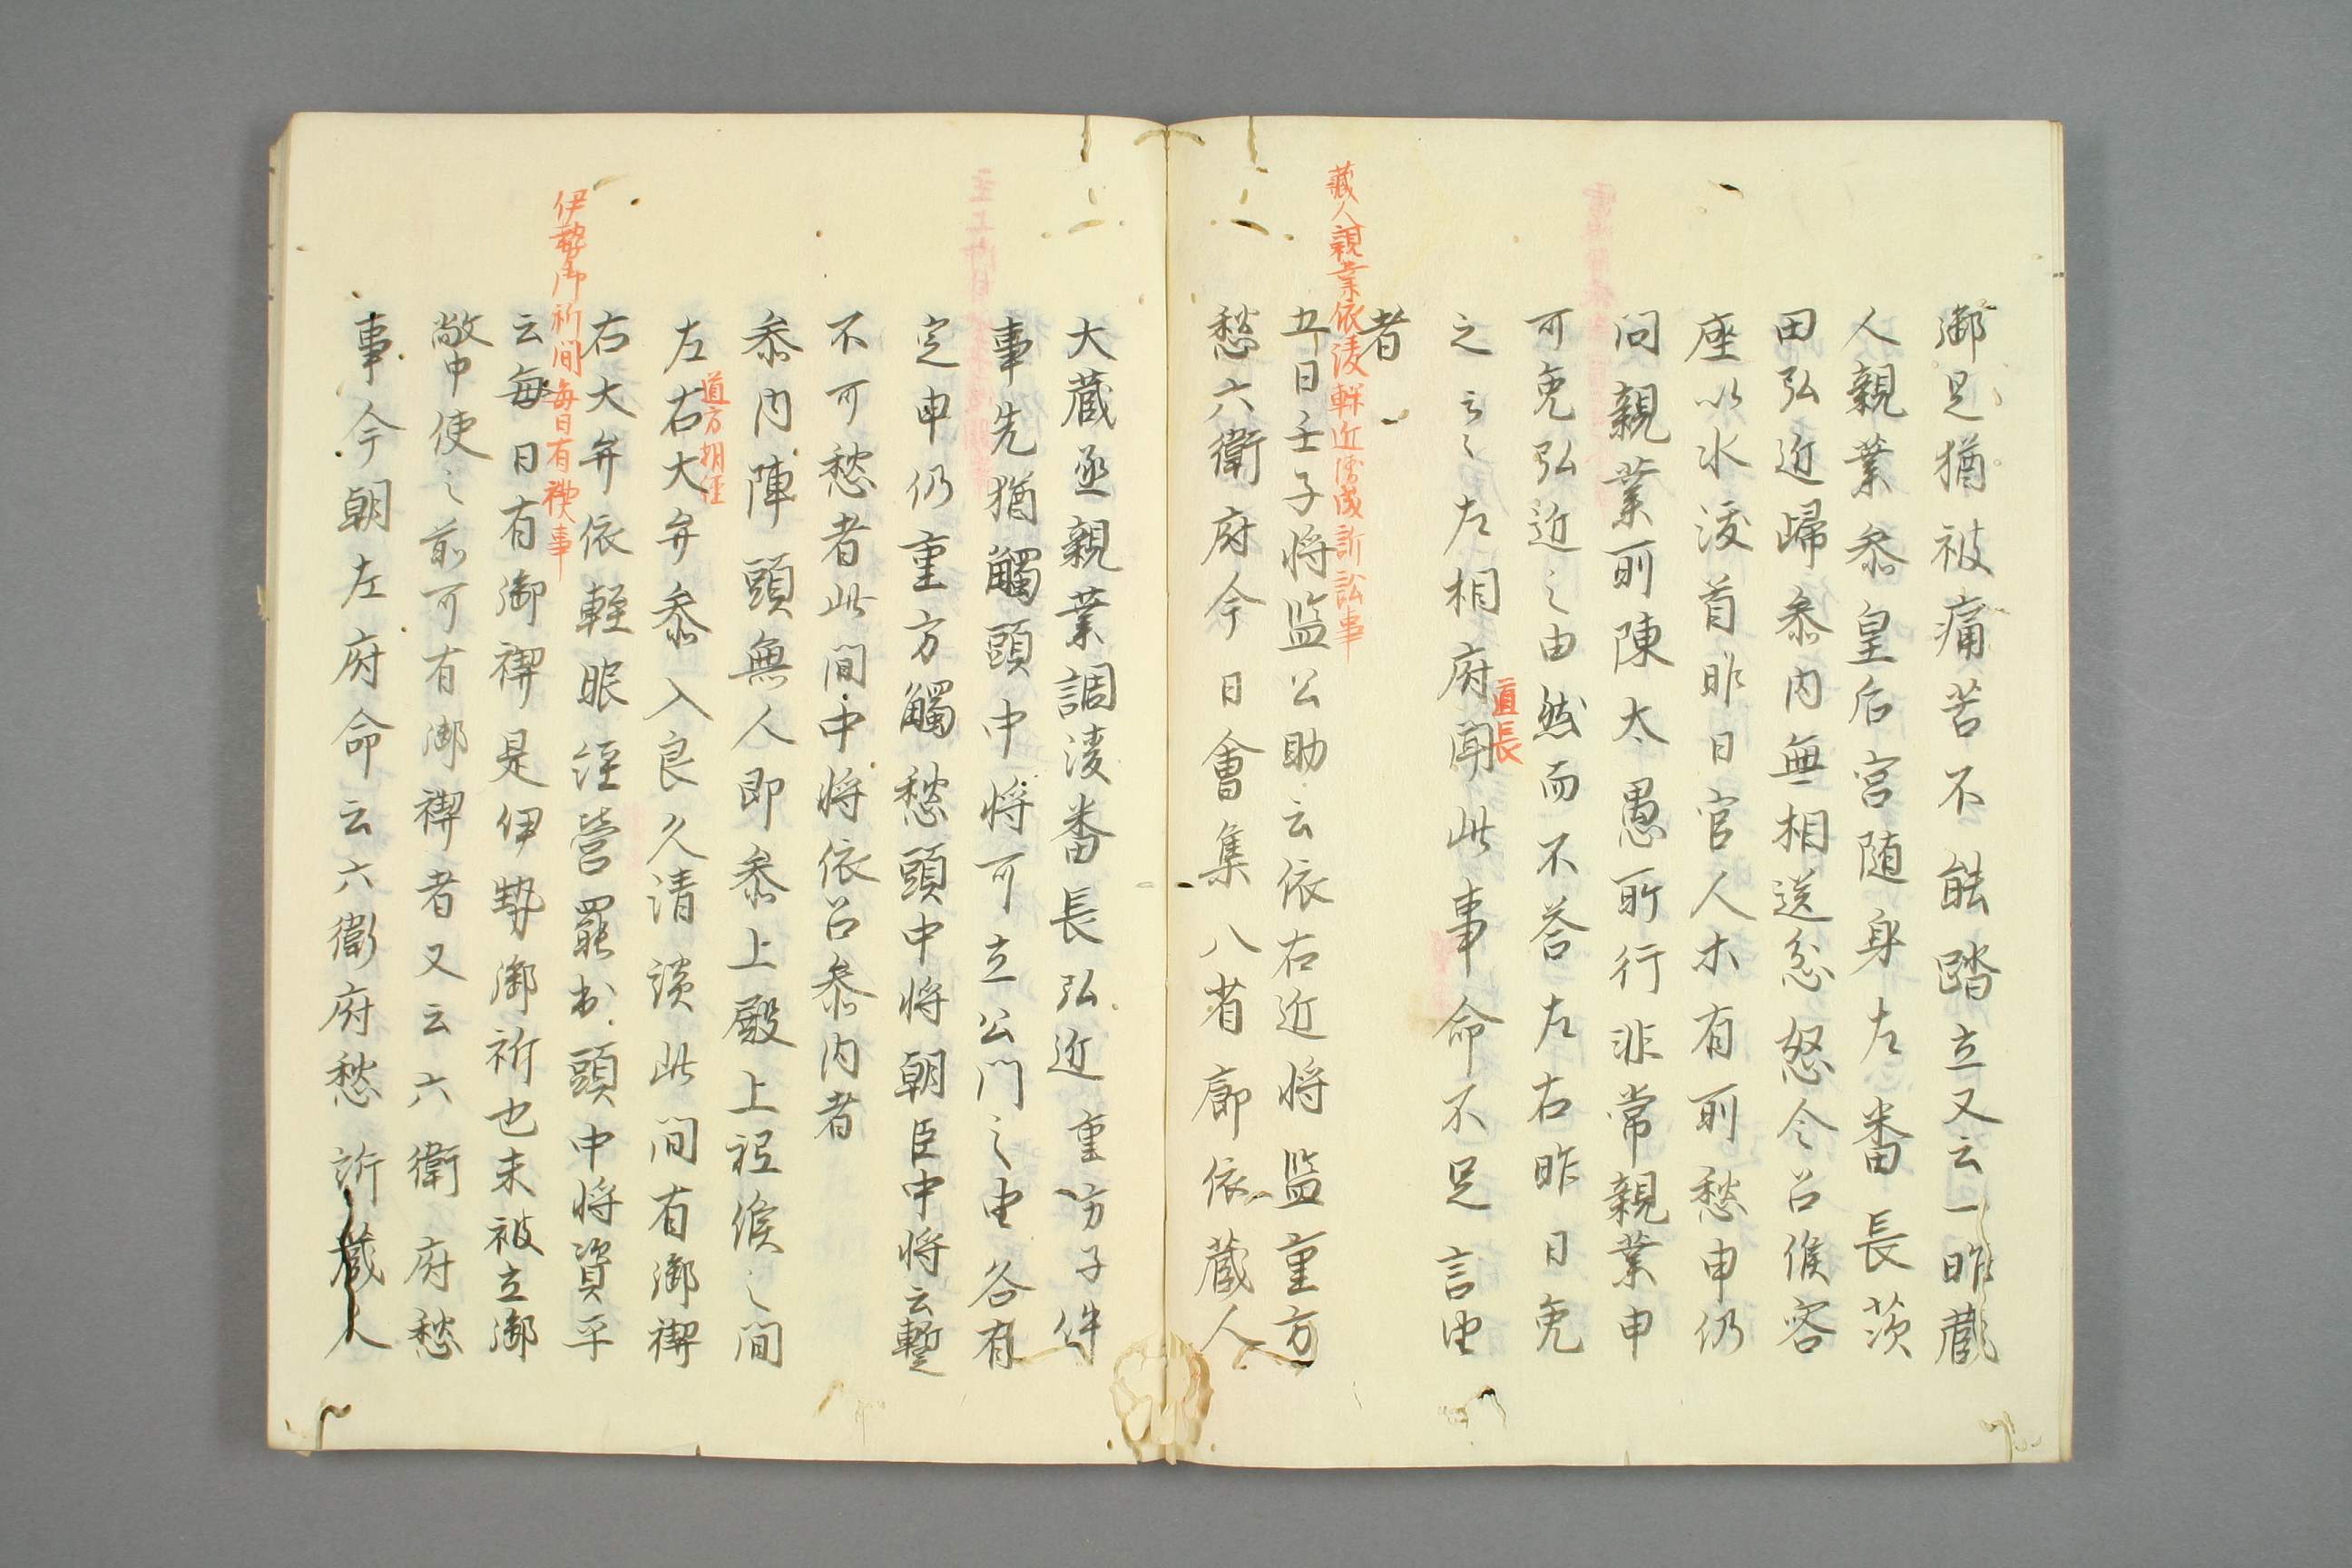 御足猶被痛苦不能踏立又云一昨蔵
人親業参皇后宮随身左番長茨
田弘近帰参内無相送忿怒令召候客
座以水淩首昨日官人木有所愁申仍
問親業所陳太愚所行非常親業申
可免弘近之由然而不答左右昨日免
之云々左相府聞此事命不足言由
道長
者
蔵人親業依淩轢近府成訴訟事
五日壬子将監公助云依右近将監重方
愁六衛府今日會集八省廊依蔵人
大蔵丞親業調淩番長弘近重方子件
事先猶觸頭中将可立公門之由各有
定申仍重方觸愁頭中将朝臣中将云蹔
不可愁者此間中将依召参内者
参内陣頭無人即参上殿上祗候之間
左右大弁参入良久清談此間有御禊
道方 朝経
右大弁依軽眼経營罷出頭中将資平
伊勢御祈間毎日有禊事
云毎日有御禊是伊勢御祈也未被立御
幣使之前可有御禊者又云六衛府愁
事今朝左府命云六衛府愁訴蔵人